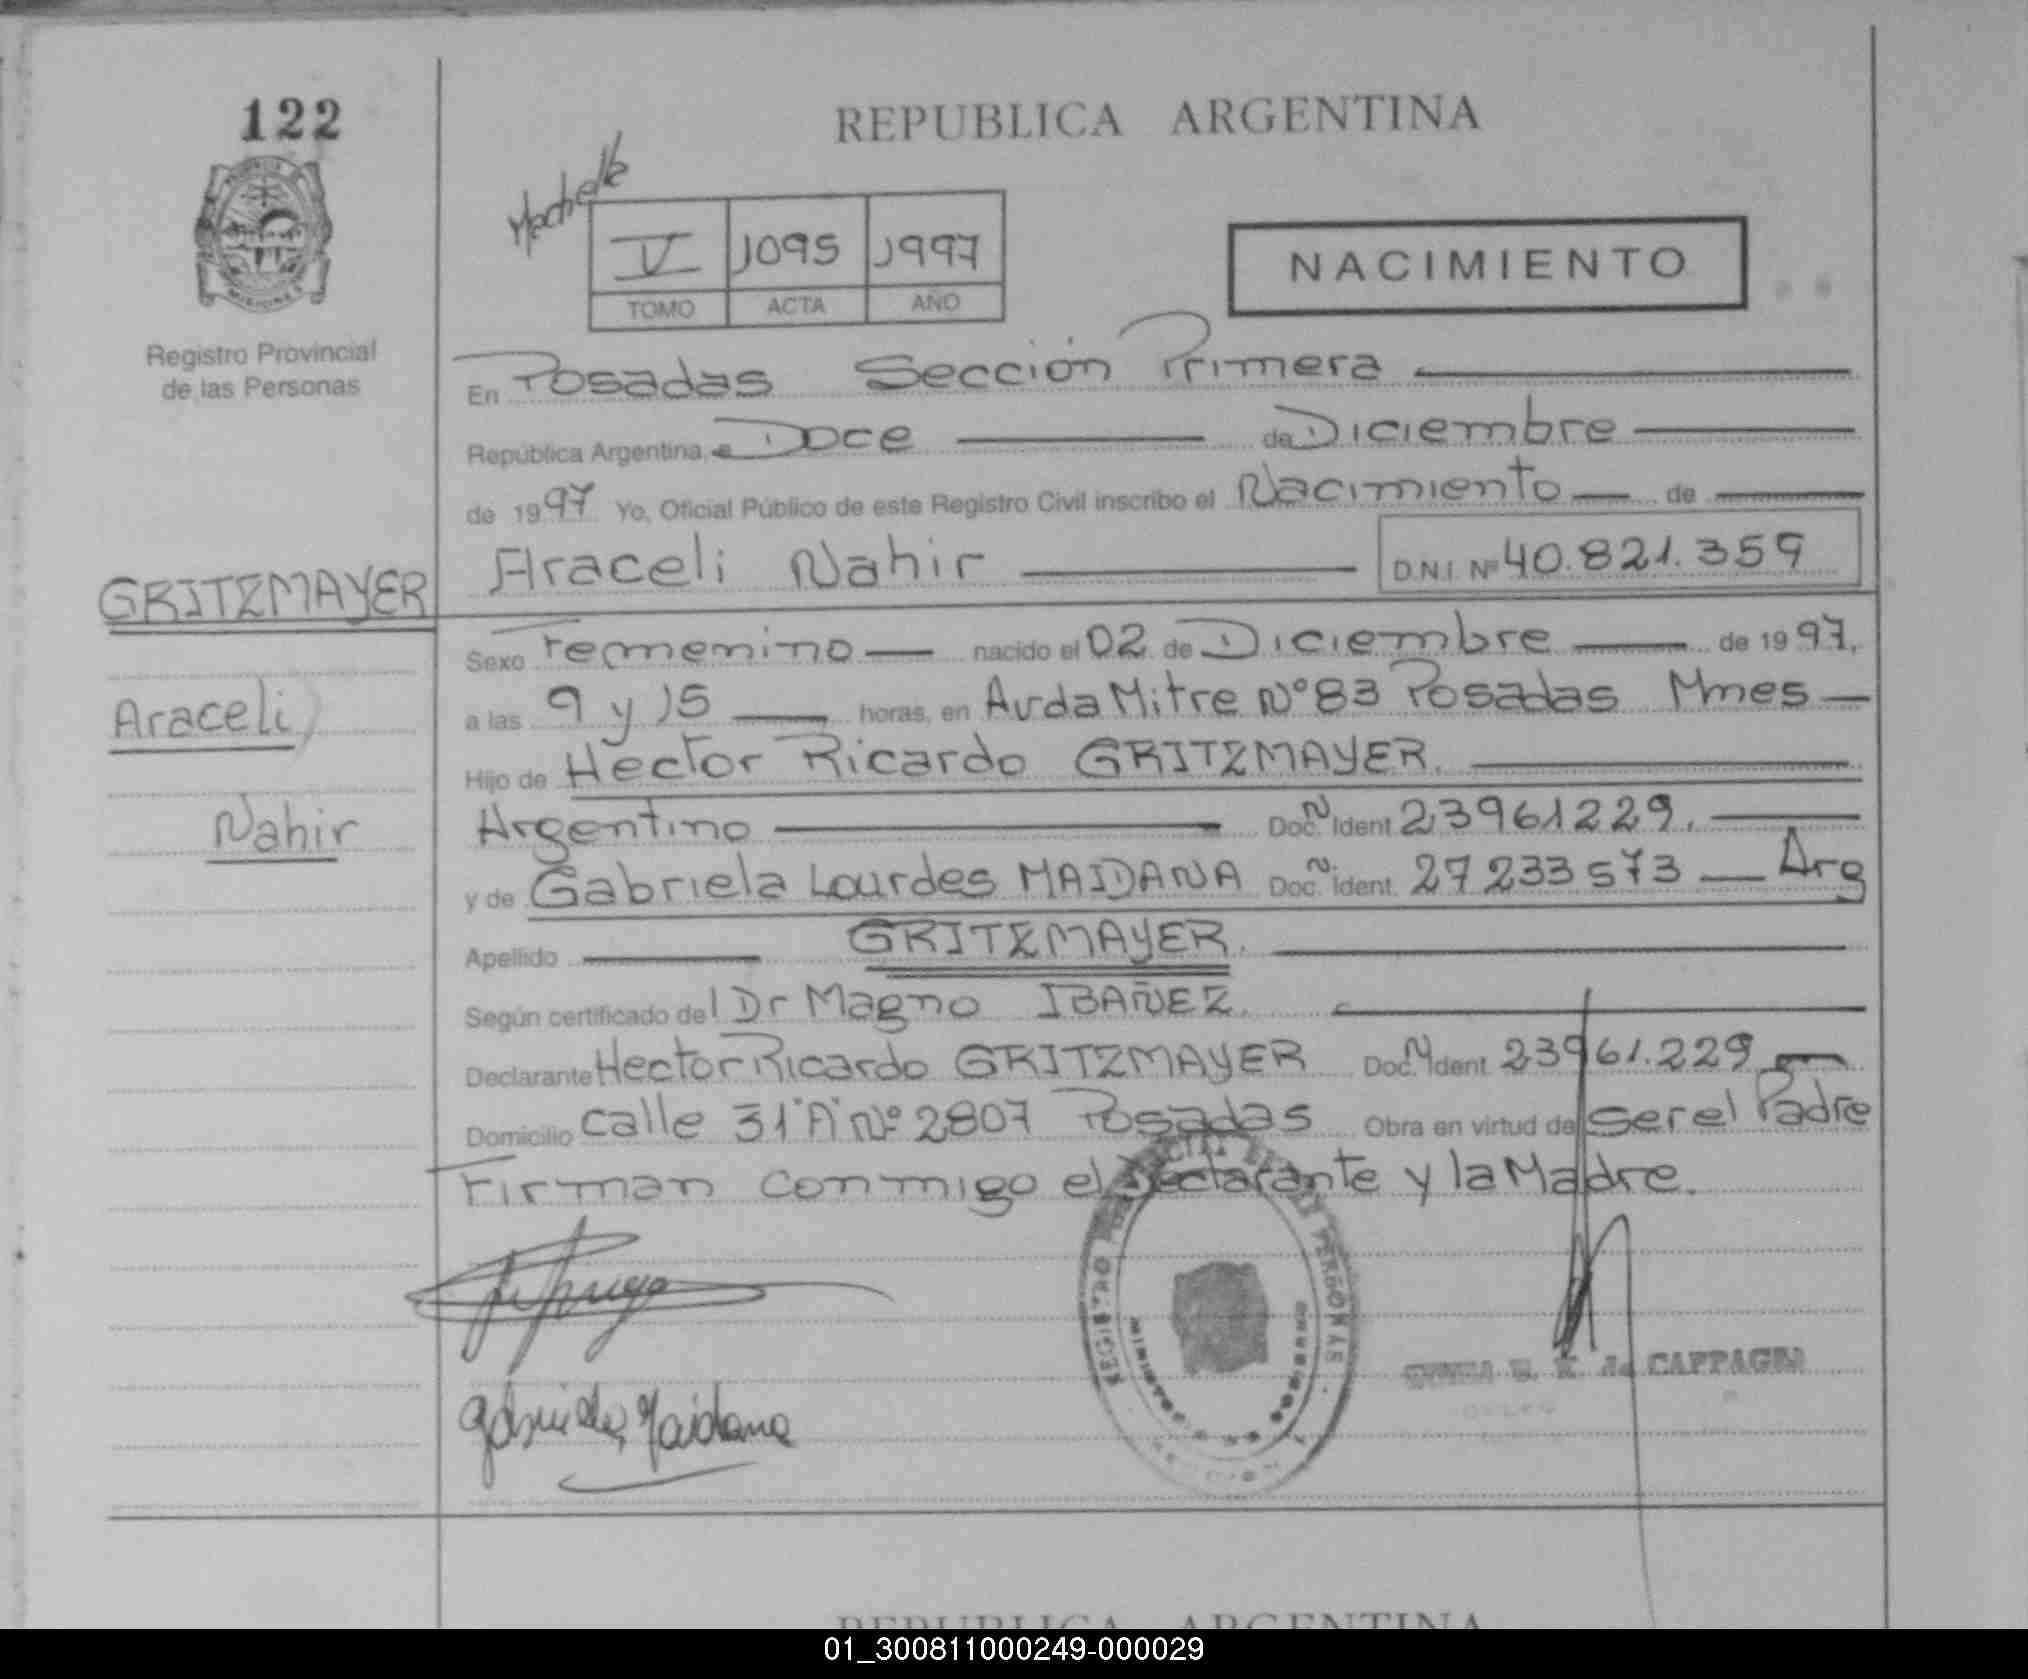 122
REPUBLICA ARGENTINA
V 1095 1997
TOMO ACTA AÑO
NACIMIENTO
Registro Provincial
de las Personas
En Posadas Sección Primera
República Argentina, a Doce de Diciembre
de 1997 Yo, Oficial Público de este Registro Civil inscribo el Nacimiento de
Araceli Nahir D.N.I. Nº 40.821.359
GRITZMAYER
Araceli
Nahir
Sexo Femenino nacido el 02 de Diciembre de 1997,
a las 9 y 15 horas, en Avda Mitre Nº 83 Posadas Mnes
Hijo de Hector Ricardo GRITZMAYER.
Argentino Doc. N Ident 23961229.
y de Gabriela Lourdes MAIDANA Doc. N Ident. 27233573 Arg
Apellido GRITZMAYER.
Según certificado del Dr Magno IBAÑEZ.
Declarante Hector Ricardo GRITZMAYER Doc. N Ident. 23961.229
Domicilio Calle 31 "A" Nº 2807 Posadas Obra en virtud de ser el Padre
Firman conmigo el Declarante y la Madre.
REGISTRO PERSONAS
Gabriela Maidana
de CAPPAGLI
REPUBLICA ARGENTINA
01_300811000249-000029